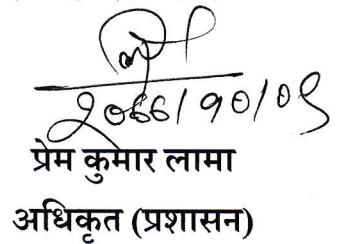 २०६६/१०/०९
प्रेम कुमार लामा
अधिकृत (प्रशासन)